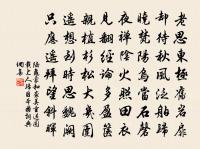 老思東極舊岩扉
却待秋風泛舶歸
曉梵陽烏當石磬
夜禪陰火照田衣
見翻經論多盈篋
親植杉松大幾圍
遙想到時思魏闕
只應遙拜望斜暉
陸龜蒙和襲美重送圓
載上人歸日本國詞典
網集